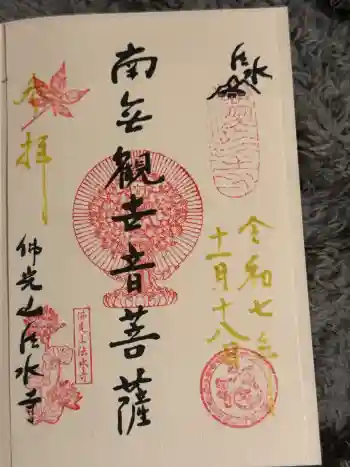 法水
令和七年
十一月十八日
南無觀世音菩薩
奉拝
佛光山法水寺
佛光山法水寺